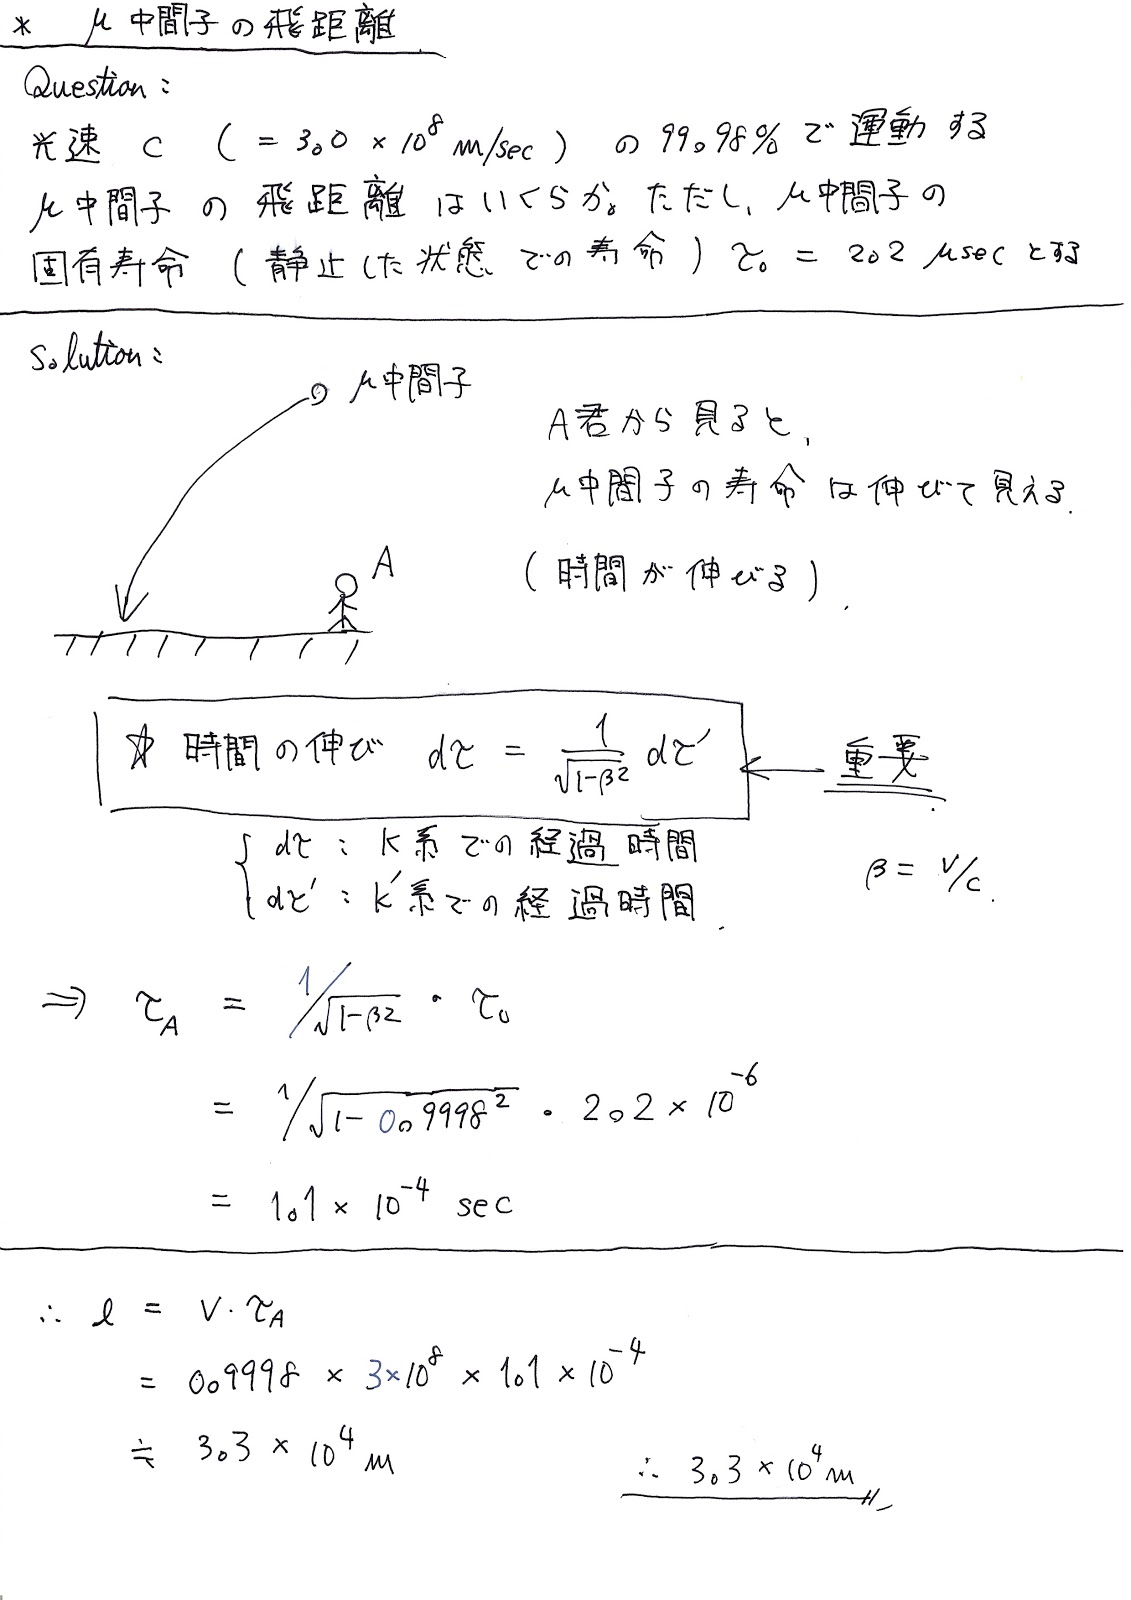 * μ中間子の飛距離
Question:
光速 c ( = 3.0 × 10^8 m/sec ) の 99.98% で運動する
μ中間子 の 飛距離 はいくらか。ただし、μ中間子の
固有寿命 (静止した状態での寿命) τ₀ = 2.2 μsec とする
Solution:
μ中間子
A
A君から見ると、
μ中間子の寿命 は伸びて見える.
(時間が伸びる).
☆ 時間の伸び dτ = 1/√(1-β²) dτ' ← 重要.
{ dτ : K系での経過時間
dτ' : K'系での経過時間.
β = v/c.
⇒ τ_A = 1/√(1-β²) · τ₀
= 1/√(1-0.9998²) · 2.2 × 10^-6
= 1.1 × 10^-4 sec
∴ l = V · τ_A
= 0.9998 × 3×10^8 × 1.1 × 10^-4
≒ 3.3 × 10^4 m
∴ 3.3 × 10^4 m